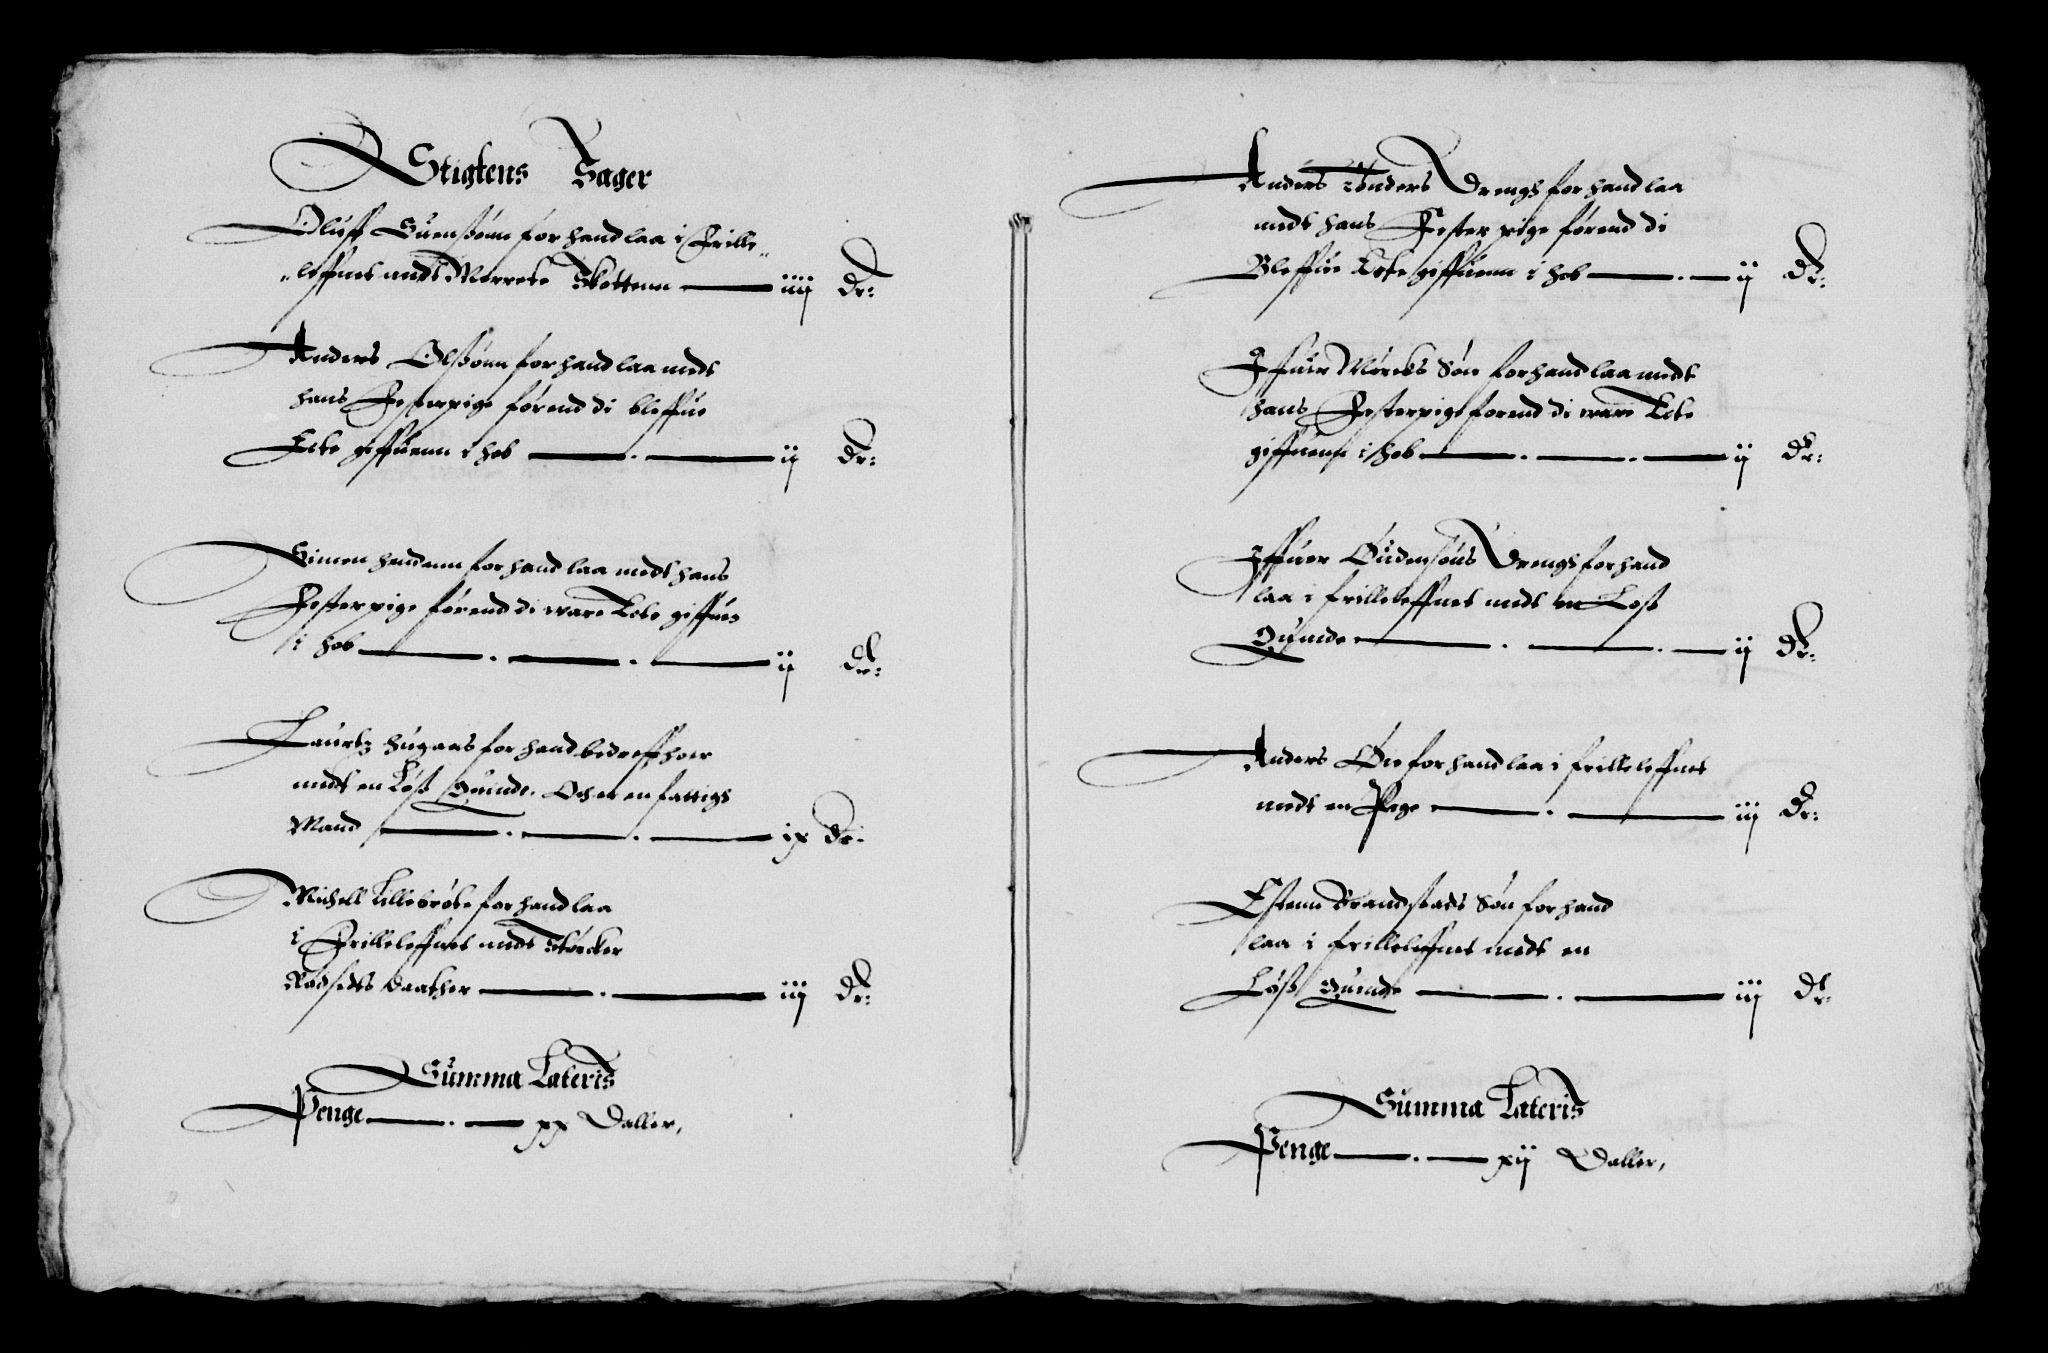 Stigtens Sager
Oluff Suenssønn for hand laa i Frille„
„leffnet medt Merrete Skottenn iiij Dr:
Anders Olssønn for hand laa medt
hans Festerpige førend di bleffue
Ecte giffuenn i hob ij Dr:
Simen for hand laa medt hans
Festerpige førend di ware Ecte giffuen
i hob ij Dr:
Lauretz Hugaas for hand bedreff hoer
medt en Løss Quinde. Och er en fattigh
Mand ix Dr:
Michell Lillebrøke for hand laa
i Frilleleffnet medt Størcker
Rødsetts daatther iij Dr:
Summa Lateris
Penge xx Daller,
Anders Tønders Drengh for hand laa
medt hans Fester pige førend di
Bleffue Ecte giffuenn i hob ij Dr:
Iffuer Mørcks Søn for hand laa medt
hans Festerpige førend di ware Ecte
giffuenn i hob ij Dr:
Iffuer Oudensøns Drengh for hand
laa i frilleleffnet medt en Løss
Quinde ij Dr:
Anders Øie for hand laa i frilleleffnet
medt en Pige iij Dr:
Estenn Brandstads Søn for hand
laa i frilleleffnet medt en
Løss Quinde iij Dr:
Summa Lateris
Penge xij Daller,